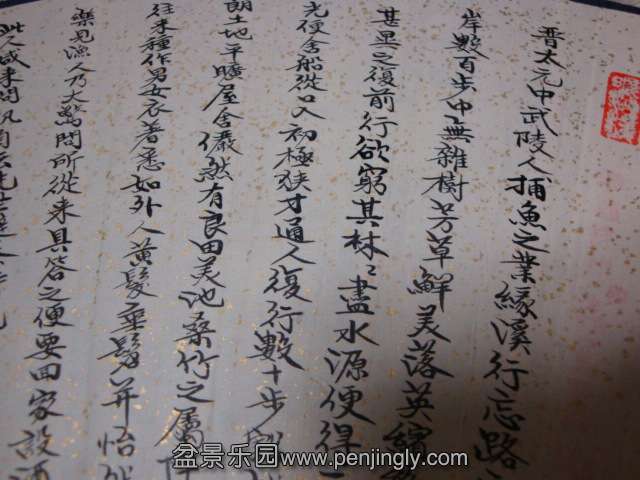 晋太元中武陵人捕魚之業緣溪行忘路
岸數百步中無雜樹芳草鮮美落英繽
甚異之復前行欲窮其林〻盡水源便得
光便舍船從口入初極狹才通人復行數十步
朗土地平曠屋舍儼然有良田美池桑竹之屬阡
往来種作男女衣著悉如外人黄髮垂髫并怡然
樂見漁人乃大驚問所從来具答之便要回家設酒
此人咸来問訊自云先世
盆景乐园www.penjingly.com